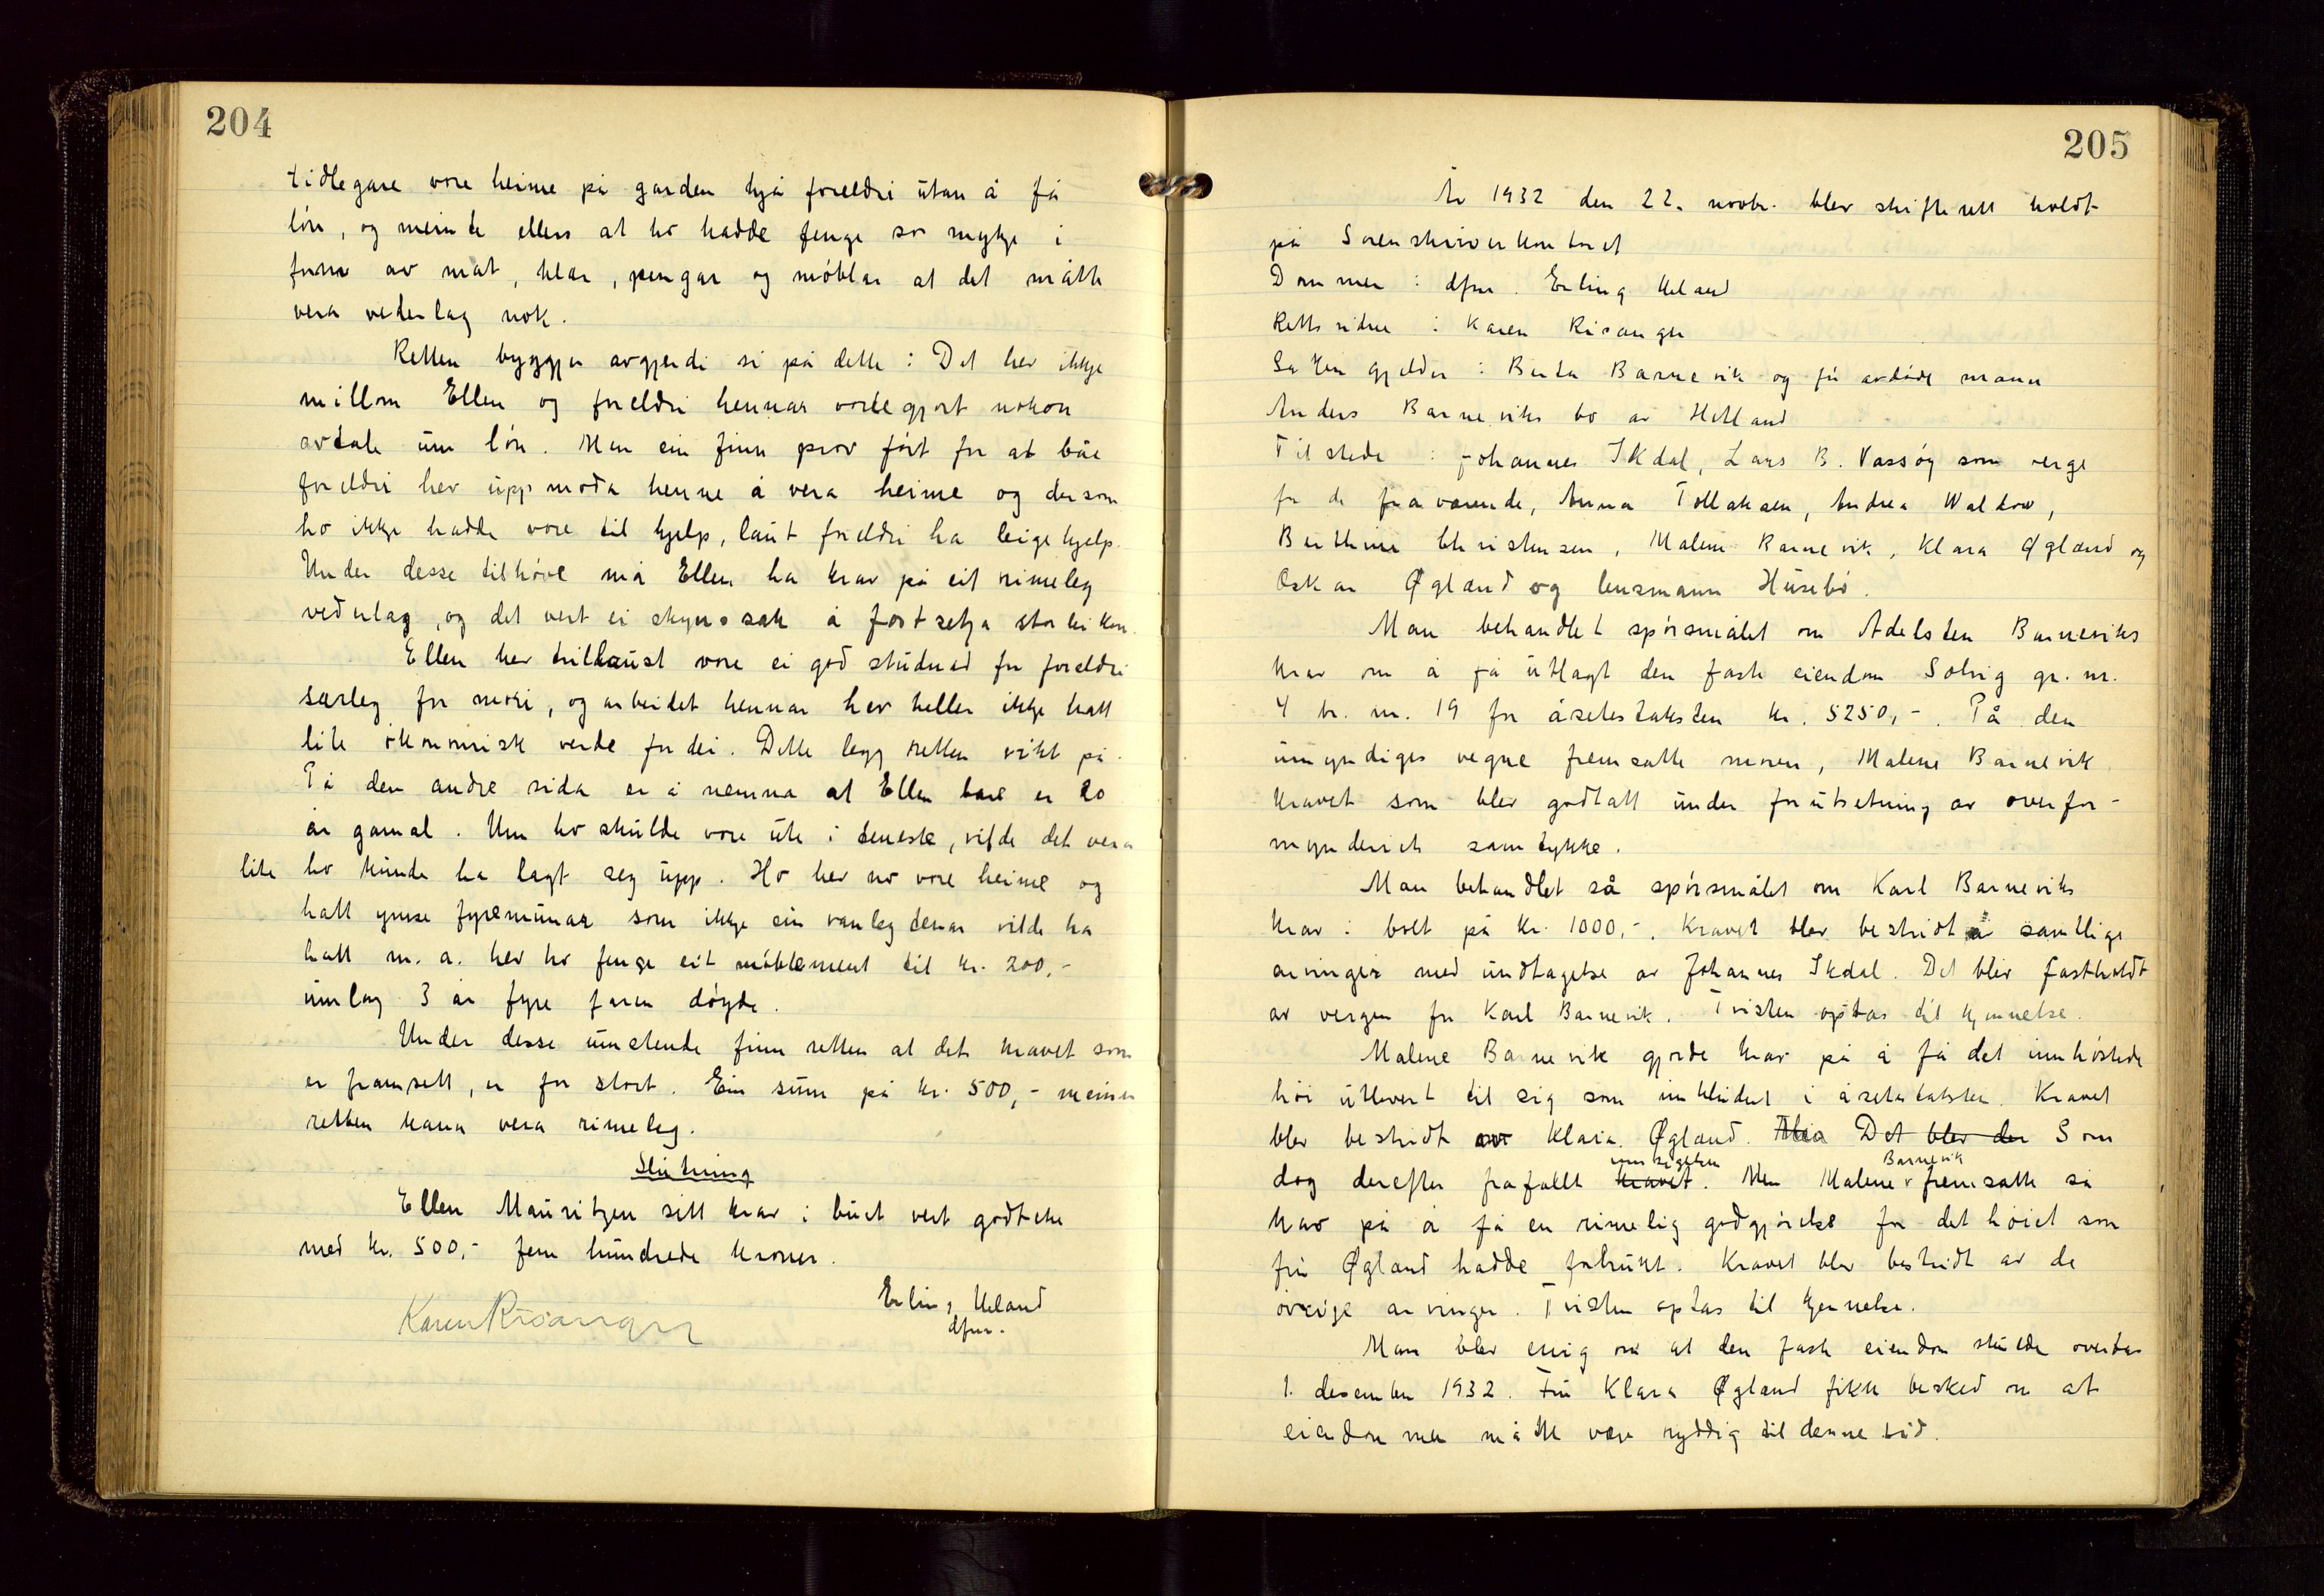 204
tidlegare vore heime på garden hjå foreldri utan å få
løn, og meinte ellers at ho hadde fenge so mykje i
form av mat, klær, pengar og møblar at det måtte
vera vederlag nok.
Retten byggjer avgjerdi si på dette: Det hev ikkje
millom Ellen og foreldri hennar vorte gjort nokon
avtale um løn. Men ein finn prov ført for at båe
foreldri hev uppmoda henne å vera heime og dersom
ho ikkje hadde vore til hjelp, laut foreldri ha leigehjelp.
Under desse tilhøve må Ellen ha krav på eit rimeleg
vederlag, og det vert ei skynssak å fastsetja storleiken.
Ellen hev tvillaust vore ei god studnad for foreldri
særleg for mori, og arbeidet hennar hev heller ikkje hatt
lite økonomisk verde for dei. Dette legg retten vikt på.
På den andre sida er å nemna at Ellen bare er 20
år gamal. Um ho skulde vore ute i teneste, vilde det vera
lite ho kunde ha lagt seg upp. Ho hev no vore heime og
hatt ymse fyremunar som ikkje ein vanleg tenar vilde ha
hatt m. a. hev ho fenge eit møblement til kr. 200,-
umlag 3 år fyre faren døyde.
Under desse umstende finn retten at det kravet som
er framsett, er for stort. Ein sum på kr. 500,- meiner
retten kann vera rimeleg.
Slutning
Ellen Mauritzen sitt krav i buet vert godteke
med kr. 500,- fem hundrede kroner.
Erling Ueland
dfm.
Karen Risanger
205
År 1932 den 22. novbr. blev skifterett holdt
på Sorenskriverkontoret
Dommer: dfm. Erling Ueland
Rettsvidne: Karen Risanger
Saken gjelder: Berta Barnevik og før avdøde mann
Anders Barneviks bo av Hetland
Tilstede: Johannes Ikdal, Lars B. Vassøy som verge
for de fraværende, Anna Tollaksen, Andrea Waldow,
Berthine Christensen, Malene Barnevik, Klara Øgland og
Oskar Øgland og lensmann Husebø.
Man behandlet spørsmålet om Adelsten Barneviks
krav om å få utlagt den faste eiendom Solvig gr. nr.
4 br. nr. 19 for åsetestaksten kr. 5250,-. På den
umyndiges vegne fremsatte moren, Malene Barnevik
kravet som blev godtatt under forutsetning av overfor-
mynderiets samtykke.
Man behandlet så spørsmålet om Karl Barneviks
krav i boet på kr. 1000,-. Kravet blev bestridt av samtlige
arvinger med undtagelse av Johannes Ikdal. Det blev fastholdt
av vergen for Karl Barnevik. Tvisten optas til kjennelse.
Malene Barnevik gjorde krav på å få det innhøstede
høi utlevert til sig som innbefattet i åsetestaksten. Kravet
blev bestridt av Klara Øgland. Det blev der Som
innsigelsen Barnevik
dog derefter frafallt kravet. Men Malene fremsatte så
krav på å få en rimelig godgjørelse for det høiet som
fru Øgland hadde forbrukt. Kravet blev bestridt av de
øvrige arvinger. Tvisten optas til kjennelse.
Man blev enig om at den faste eiendom skulde overdas
1. desember 1932. Fru Klara Øgland fikk besked om at
eiendommen måtte være ryddig til denne tid.